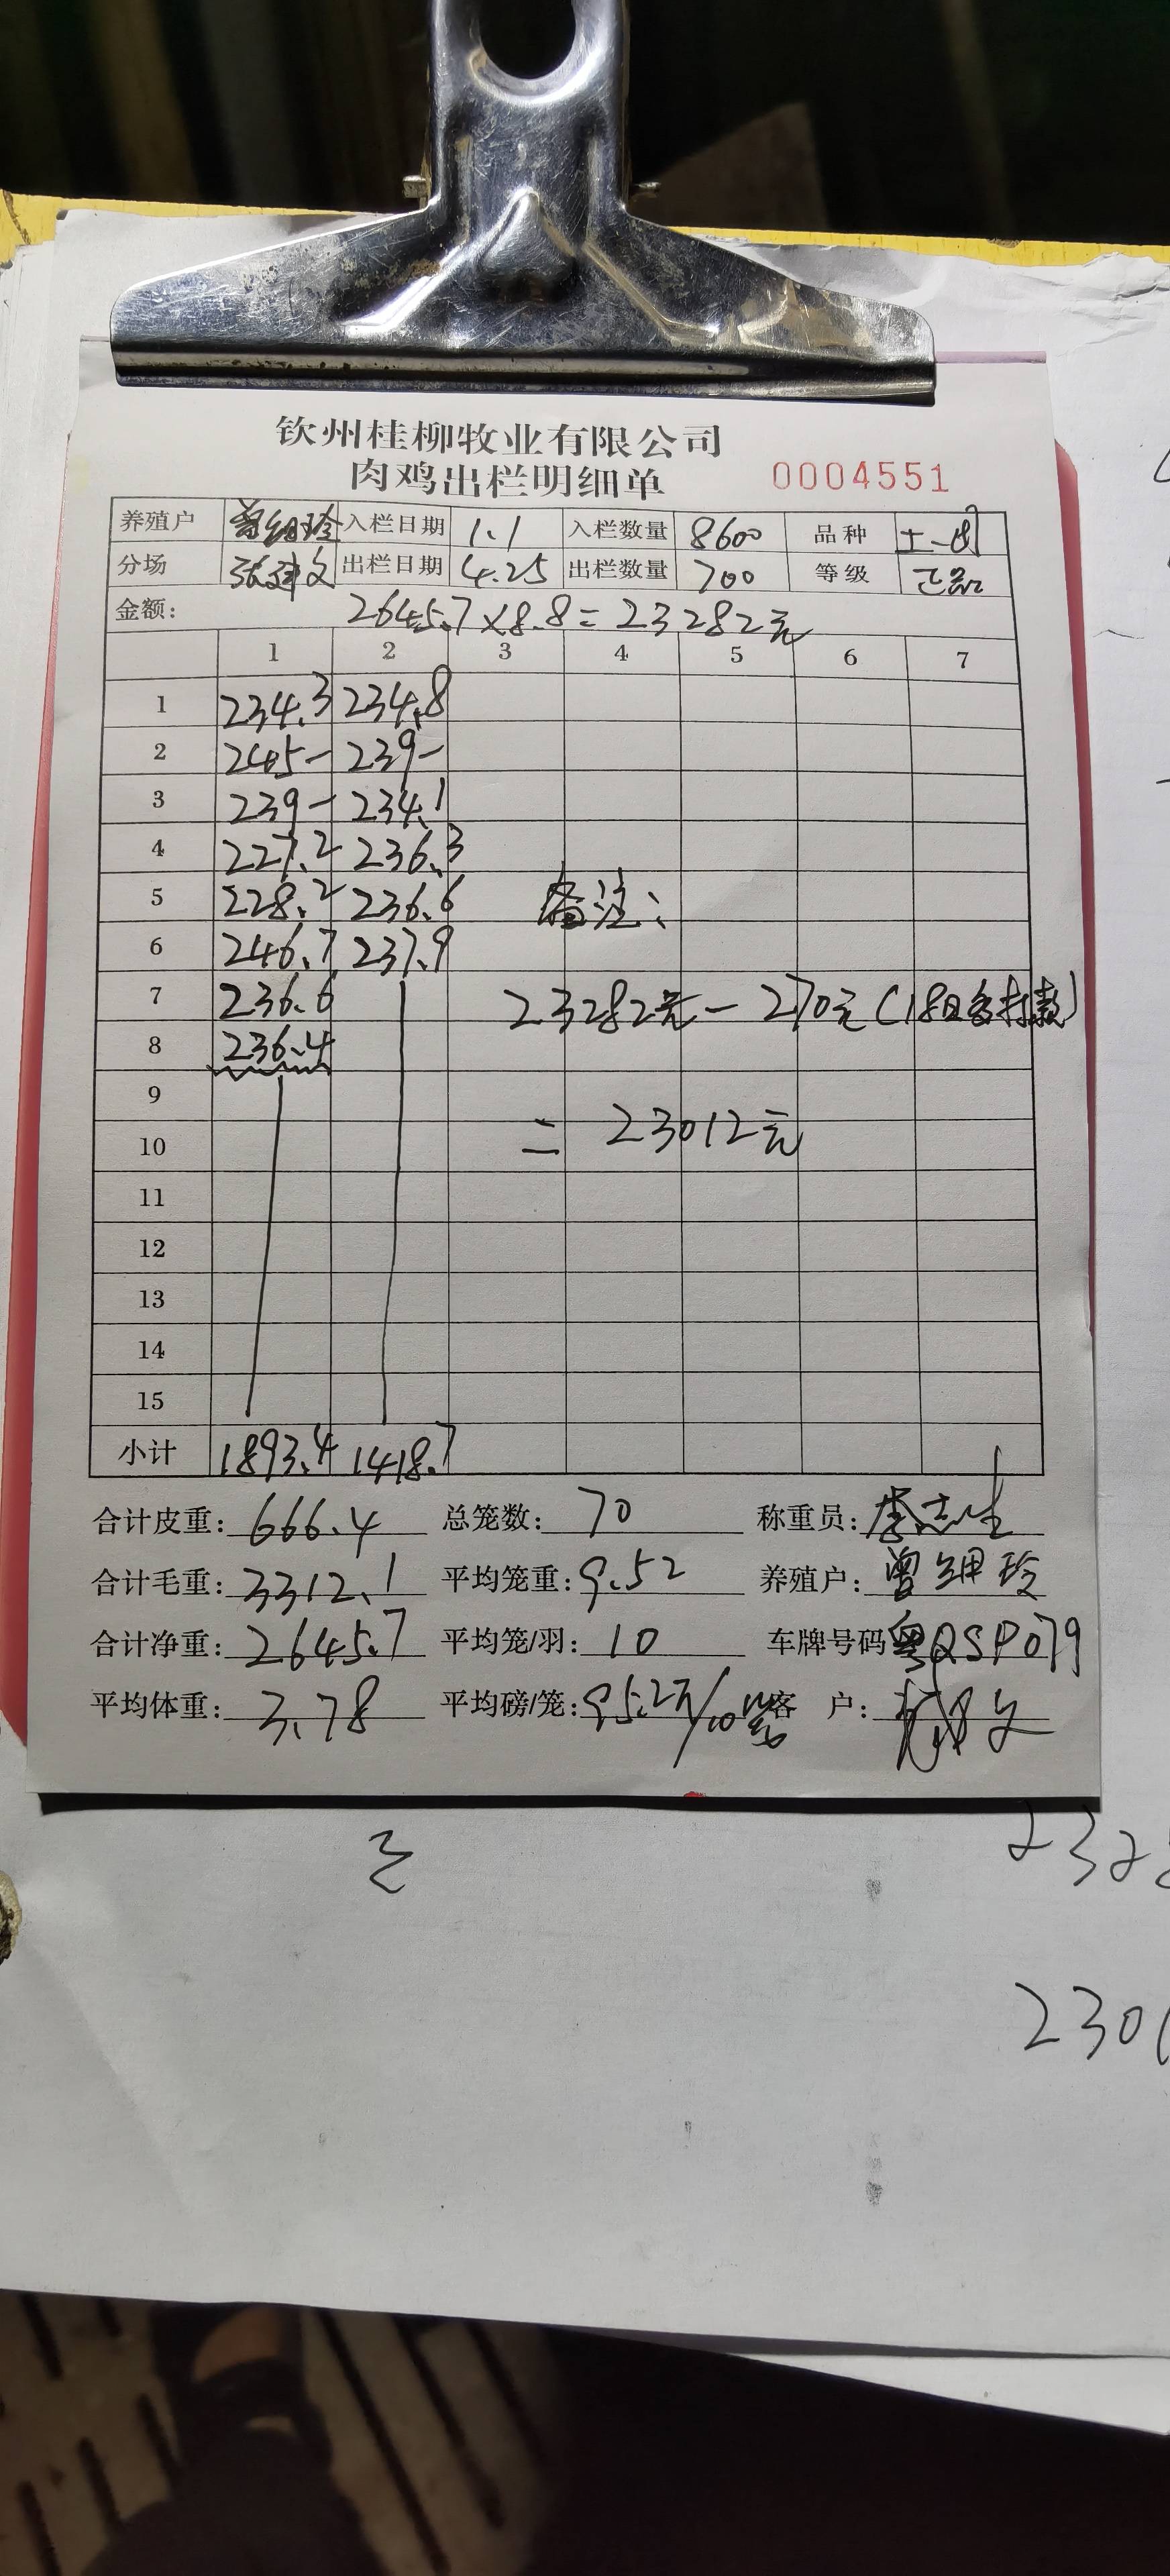 钦州桂柳牧业有限公司
肉鸡出栏明细单 0004551
养殖户 曾细玲 入栏日期 1.1 入栏数量 8600 品种 土一
分场 张建文 出栏日期 4.25 出栏数量 700 等级 正品
金额: 2645.7×8.8=23282元
1 2 3 4 5 6 7
1 234.3 234.8
2 245- 239-
3 239- 234.1
4 227.2 236.3
5 228.2 236.6
备注:
6 246.7 237.9
7 236.6
23282元-270元(18日多打款)
8 236.4
9
10
=23012元
11
12
13
14
15
小计 1893.4 1418.7
合计皮重: 666.4 总笼数: 70 称重员: 李志生
合计毛重: 3312.1 平均笼重: 9.52 养殖户: 曾细玲
合计净重: 2645.7 平均笼/羽: 10 车牌号码 粤QSP079
平均体重: 3.78 平均磅/笼: 95.2斤/10笼 客 户:
2328
230